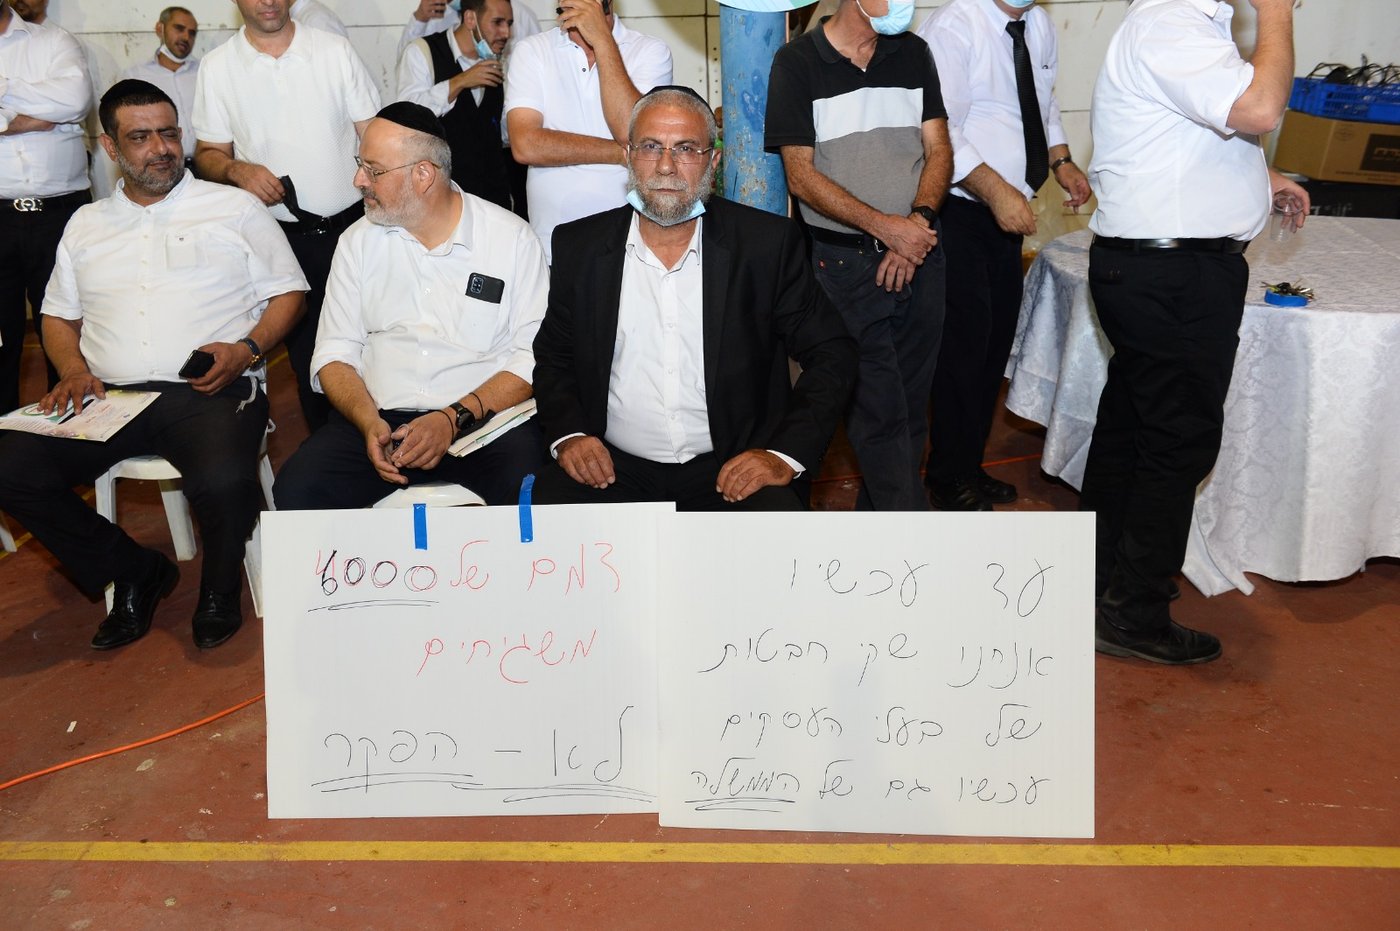 דמם של 6000
משגיחים
לא - הפקר
עד עכשיו
אנחנו שקי חבטות
של בעלי העסקים
עכשיו גם של הממשלה